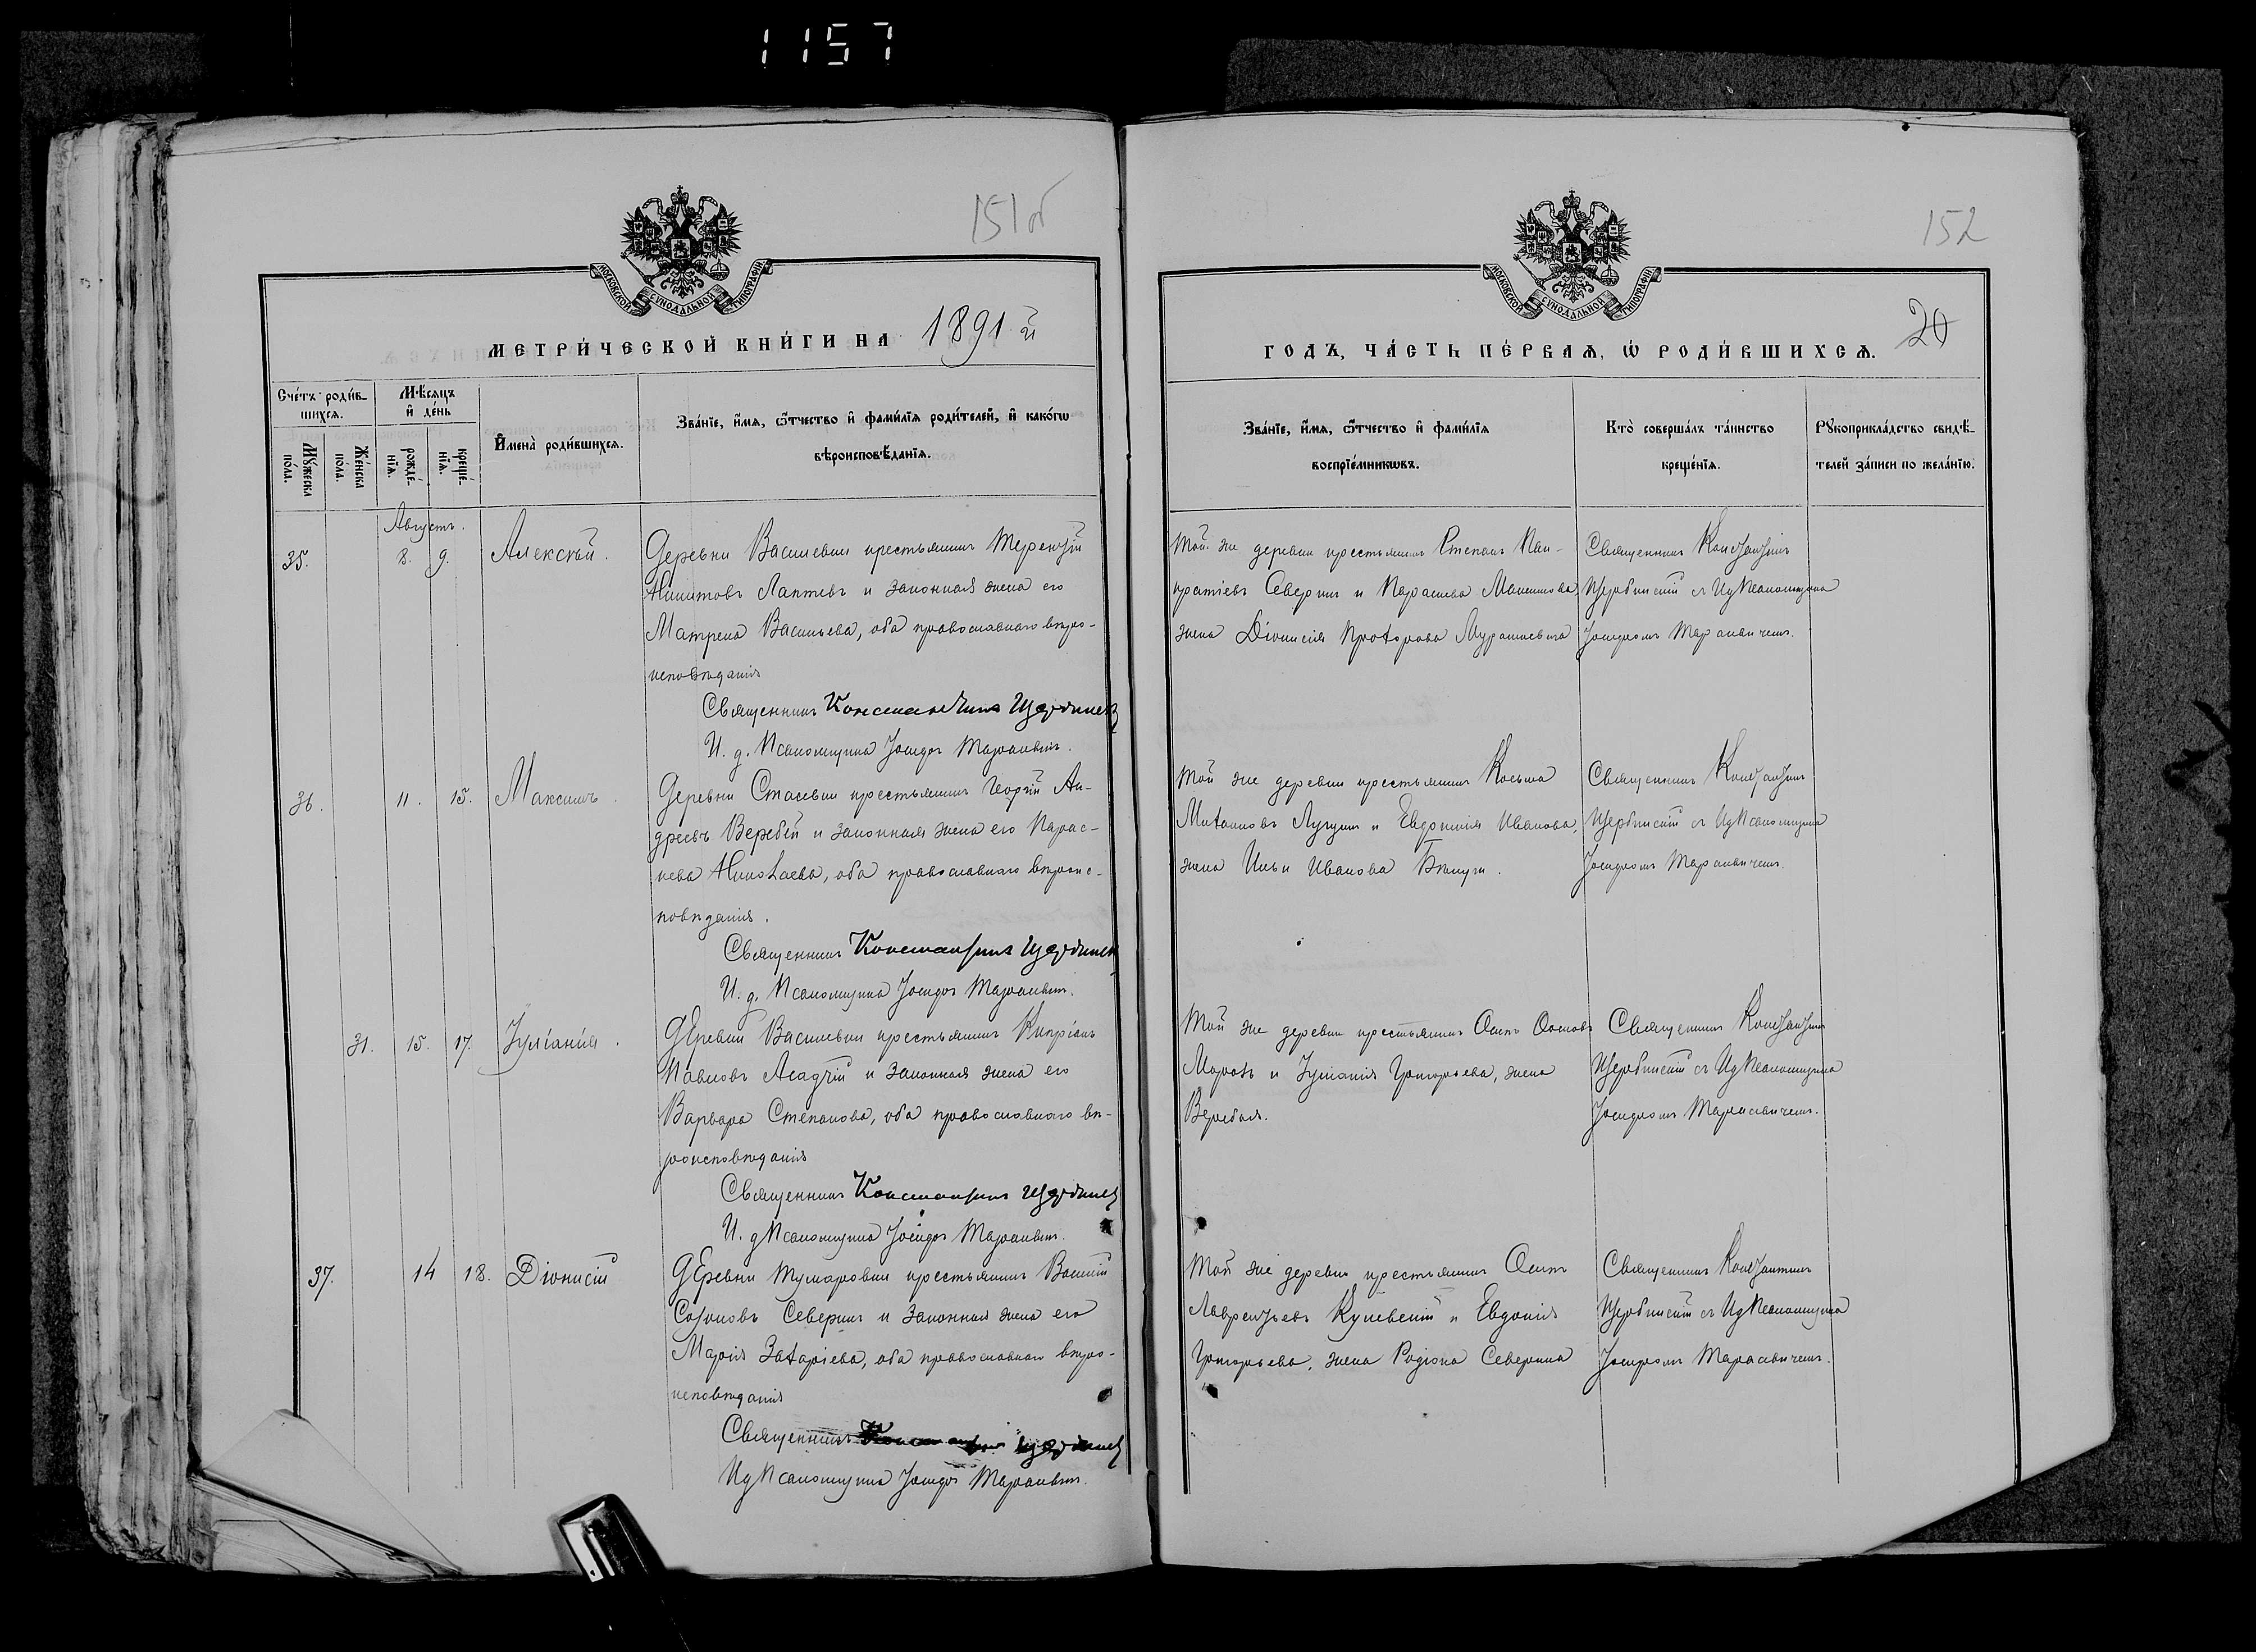 1157
151об
МОСКОВСКОЙ СѴНОДАЛЬНОЙ ТИПОГРАФІИ
МЕТРИ́ЧЕСКОЙ КНИ́ГИ НА 1891 й
Сче́тъ роди́в-
шихсѧ.
Мꙋ́жеска пола.
Же́нска пола.
Мѣ́сѧцъ
и҆ де́нь
рожде́-
нїѧ.
креще́-
нїѧ.
И҆мена̀ роди́вшихсѧ.
Зва́нїе, и҆́мѧ, ѻ҆́тчество и҆ фами́лїѧ роди́телей, и҆ како́гѡ
вѣроисповѣ́данїѧ.
Августъ.
35. 8. 9. Алексѣй.
Деревни Василевки крестьянинъ Терентій
Никитовъ Лаптевъ и законная жена его
Матрена Васильева, оба православнаго вѣро-
исповѣданія
Священникъ Константинъ
И. д. Псаломщика
36. 11. 15. Максимъ.
Деревни Стасевки крестьянинъ Георгій Ан-
дреевъ Веребѣй и законная жена его Парас-
кева Николаева, оба православнаго вѣроис-
повѣданія.
Священникъ Константинъ
И. д. Псаломщика
31. 15. 17. Іуліанія.
Деревни Василевки крестьянинъ Кипріанъ
Павловъ Асадчій и законная жена его
Варвара Степанова, оба православнаго вѣ-
роисповѣданія
Священникъ Константинъ
И. д Псаломщика
37. 14 18. Діонисій
Деревни крестьянинъ
Северинъ и законная жена его
Марія Захаріева, оба православнаго вѣро-
исповѣданія
Священникъ
Ид Псаломщика
152
МОСКОВСКОЙ СѴНОДАЛЬНОЙ ТИПОГРАФІИ
ГОДЪ, ЧА́СТЬ ПЕ́РВАѦ, Ѡ҆ РОДИ́ВШИХСѦ. 20
Зва́нїе, и҆́мѧ, ѻ҆́тчество и҆ фами́лїѧ
воспрїе́мникѡвъ.
Кто̀ соверша́лъ та́инство
креще́нїѧ.
Рꙋкоприкла́дство свидѣ́-
телей за́писи по жела́нїю.
Той же деревни крестьянинъ Степанъ Пан-
кратіевъ Северинъ и Параскева Максимова,
жена Діонисія Прохорова
Священникъ Константинъ
Щербинскій съ Ид Псаломщика
Той же деревни крестьянинъ Косьма
и Евдокія Иванова,
жена Ильи Иванова
Священникъ Константинъ
Щербинскій съ Ид Псаломщика
Той же деревни крестьянинъ Осипъ
Морозъ и Іуліанія Григорьева, жена
Веребья.
Священникъ Константинъ
Щербинскій съ Ид Псаломщика
Той же деревни крестьянинъ Осипъ
Лаврентьевъ и Евдокія
Григорьева, жена Родіона Северина
Священникъ Константинъ
Щербинскій съ Ид Псаломщика